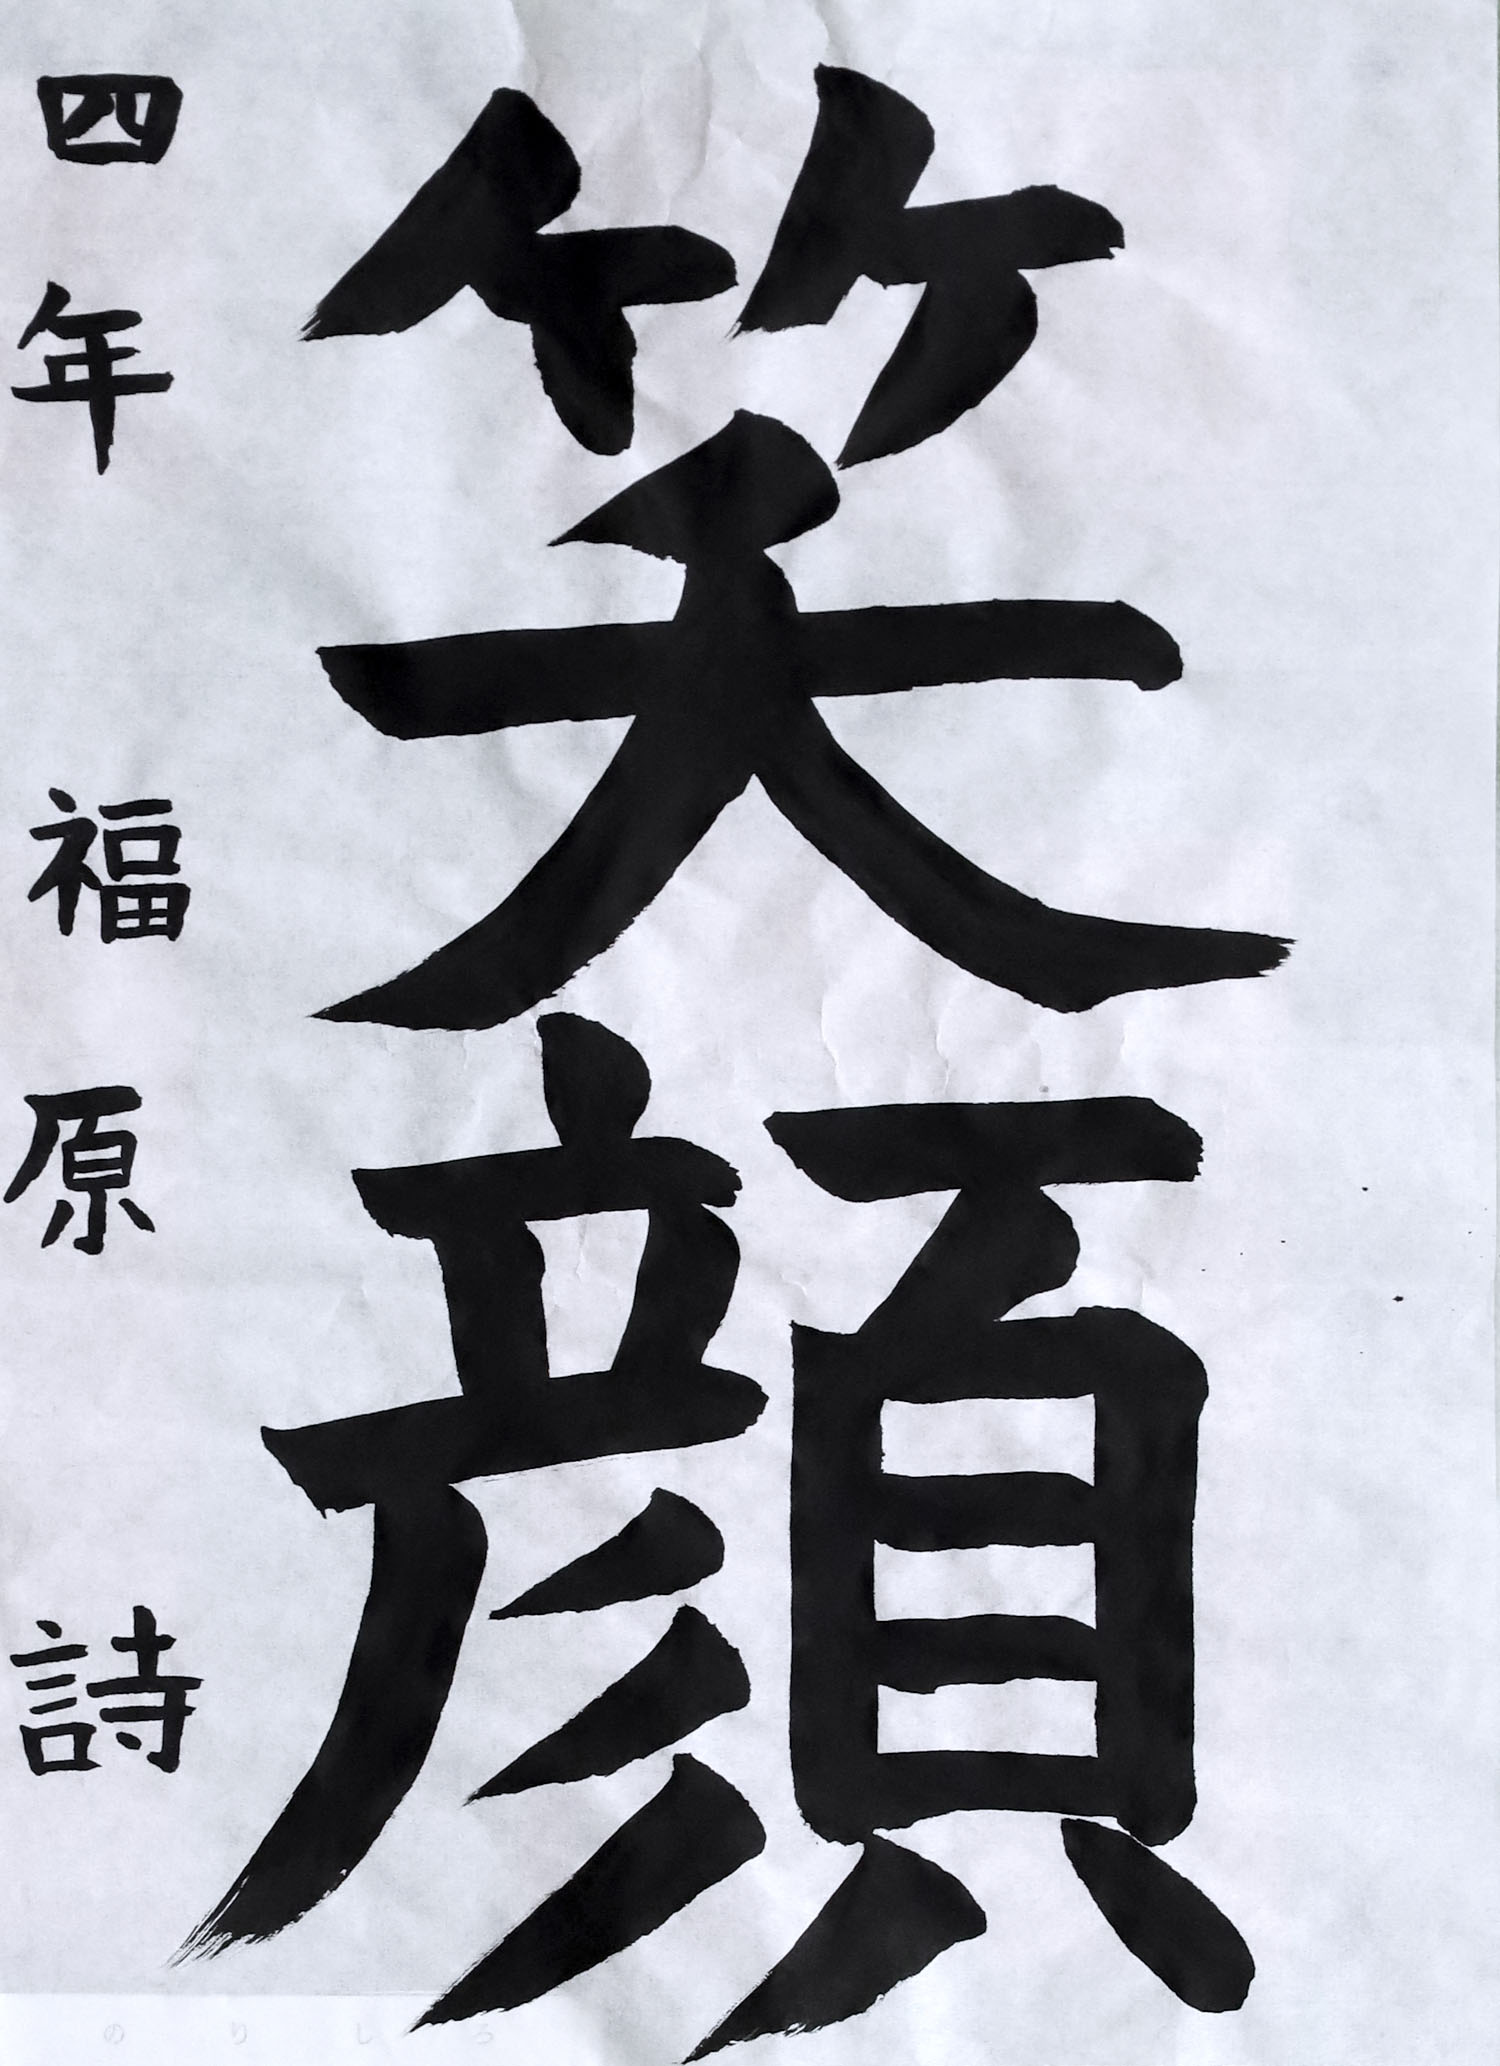 笑顔
四年 福原 詩
のりしろ